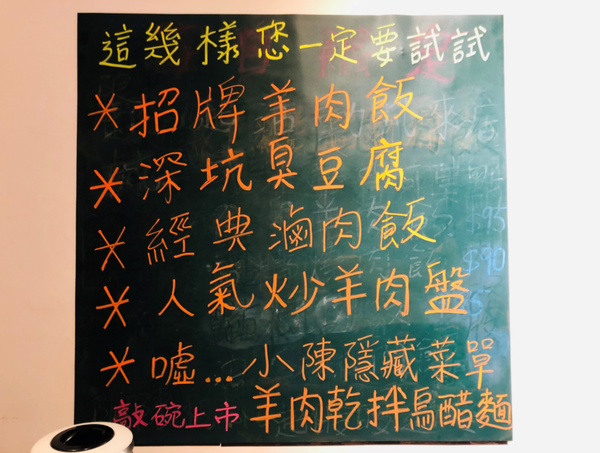 這幾樣您一定要試試
* 招牌羊肉飯
* 深坑臭豆腐
* 經典滷肉飯
* 人氣炒羊肉盤
* 噓...小陳隱藏菜單
敲碗上市 羊肉乾拌烏醋麵